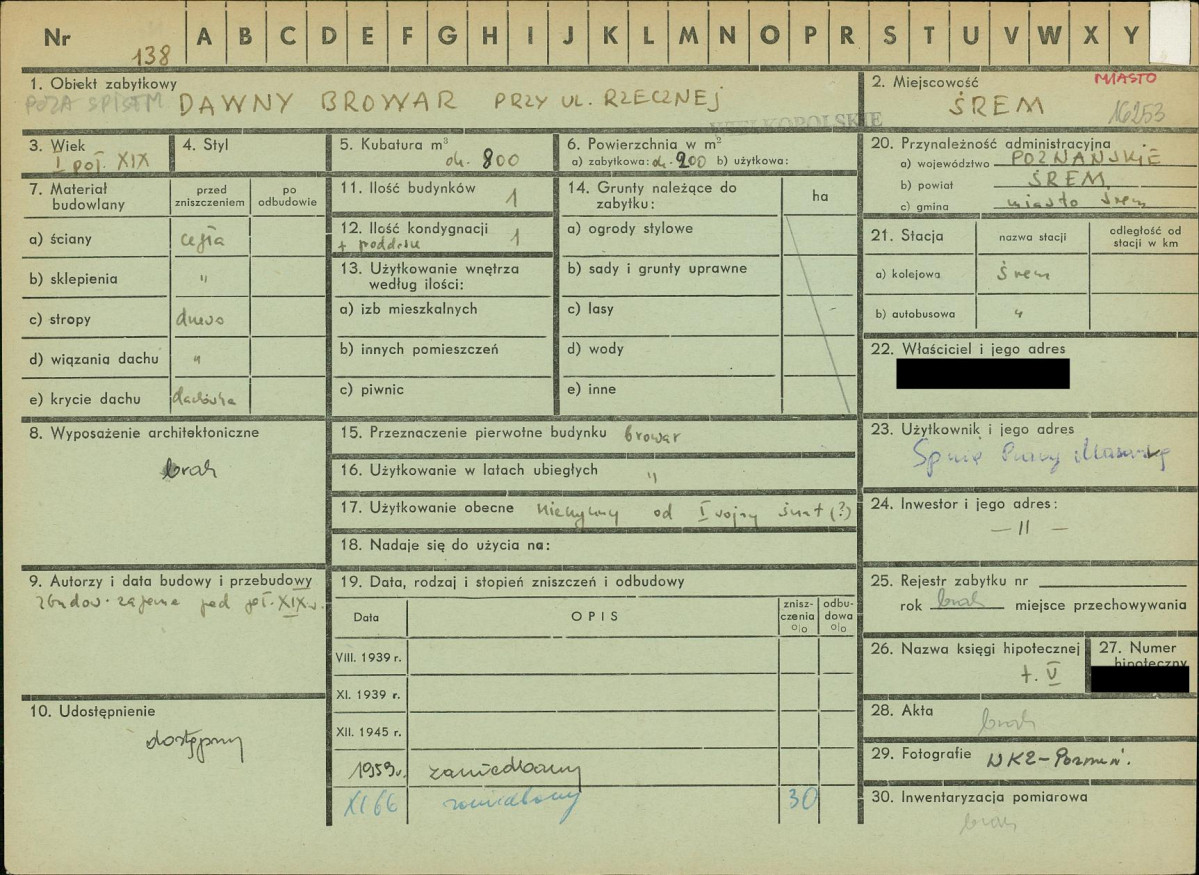 Nr 138 A B C D E F G H I J K L M N O P R S T U V W X Y
1. Obiekt zabytkowy
POZA SPISEM DAWNY BROWAR PRZY UL. RZECZNEJ
WIELKOPOLSKIE
2. Miejscowość MIASTO
ŚREM 16253
3. Wiek
I poł. XIX
4. Styl
5. Kubatura m³
ok. 800
6. Powierzchnia w m²
a) zabytkowa: ok. 200 b) użytkowa:
7. Materiał budowlany
przed zniszczeniem
po odbudowie
a) ściany cegła
b) sklepienia "
c) stropy drewo
d) wiązania dachu "
e) krycie dachu dachówka
8. Wyposażenie architektoniczne
brak
9. Autorzy i data budowy i przebudowy
zbudow. zapewne pod poł. XIX w.
10. Udostępnienie
dostępny
11. Ilość budynków 1
12. Ilość kondygnacji 1
+ poddasze
13. Użytkowanie wnętrza
według ilości:
a) izb mieszkalnych
b) innych pomieszczeń
c) piwnic
14. Grunty należące do
zabytku:
ha
a) ogrody stylowe
b) sady i grunty uprawne
c) lasy
d) wody
e) inne
15. Przeznaczenie pierwotne budynku browar
16. Użytkowanie w latach ubiegłych "
17. Użytkowanie obecne nieczynny od I wojny świat (?)
18. Nadaje się do użycia na:
19. Data, rodzaj i stopień zniszczeń i odbudowy
Data OPIS znisz-czenia % odbu-dowa %
VIII. 1939 r.
XI. 1939 r.
XII. 1945 r.
1959 r. zaniedbany
XI 66 zaniedbany 30
20. Przynależność administracyjna
a) województwo POZNAŃSKIE
b) powiat ŚREM
c) gmina miasto Śrem
21. Stacja nazwa stacji odległość od stacji w km
a) kolejowa Śrem
b) autobusowa "
22. Właściciel i jego adres
23. Użytkownik i jego adres
24. Inwestor i jego adres:
— " —
25. Rejestr zabytku nr
rok brak miejsce przechowywania
26. Nazwa księgi hipotecznej
t. V
27. Numer
hipoteczny
28. Akta
brak
29. Fotografie WKZ-Poznań.
30. Inwentaryzacja pomiarowa
brak